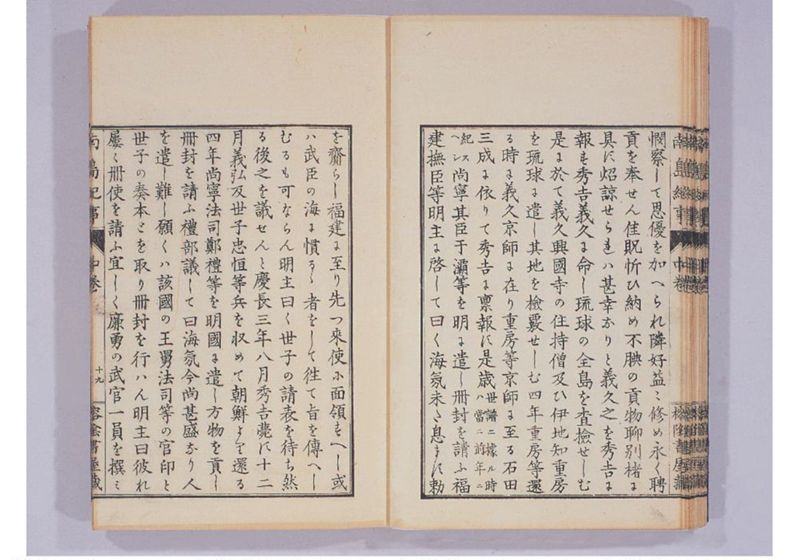 憫察して恩優を加へられ隣好益〻修め永く聘
貢を奉せん佳貺忻ひ納め不腆の貢物聊別楮に
具に炤諒せらるれハ甚幸かりと義久之を秀吉に
報も秀吉義久に命し琉球の全島を査撿せしむ
是に於て義久興國寺の住持僧及ひ伊地知重房
を琉球に遣し其地を撿覈せしむ四年重房等還
る時に義久京師に在り重房等京師に至る石田
三成に依りて秀吉に禀報に是歳世譜ニ據ル時ハ當ニ前年ニ
紀スヘシ尚寧其臣于灞等を明に遣し冊封を請ふ福
建撫臣等明主に啓して曰く海氛未た息まに勅
を齎らし福建に至り先つ來使に面領もへし或
ハ武臣の海に慣るゝ者をして徃て旨を傳へし
むるも可ならん明主曰く世子の請表を待ち然
る後之を議せんと慶長三年八月秀吉薨に十二
月義弘及世子忠恒等兵を収めて朝鮮より還る
四年尚寧法司鄭禮等を明國に遣し方物を貢し
冊封を請ふ禮部議して曰海氛今尚甚盛かり人
を遣し難し願くハ該國の王舅法司等の官印と
世子の奏本とを取り冊封を行ハん明主曰彼れ
屡〻冊使を請ふ宜しく廉勇の武官一員を撰ミ
南島紀事 中巻 十九